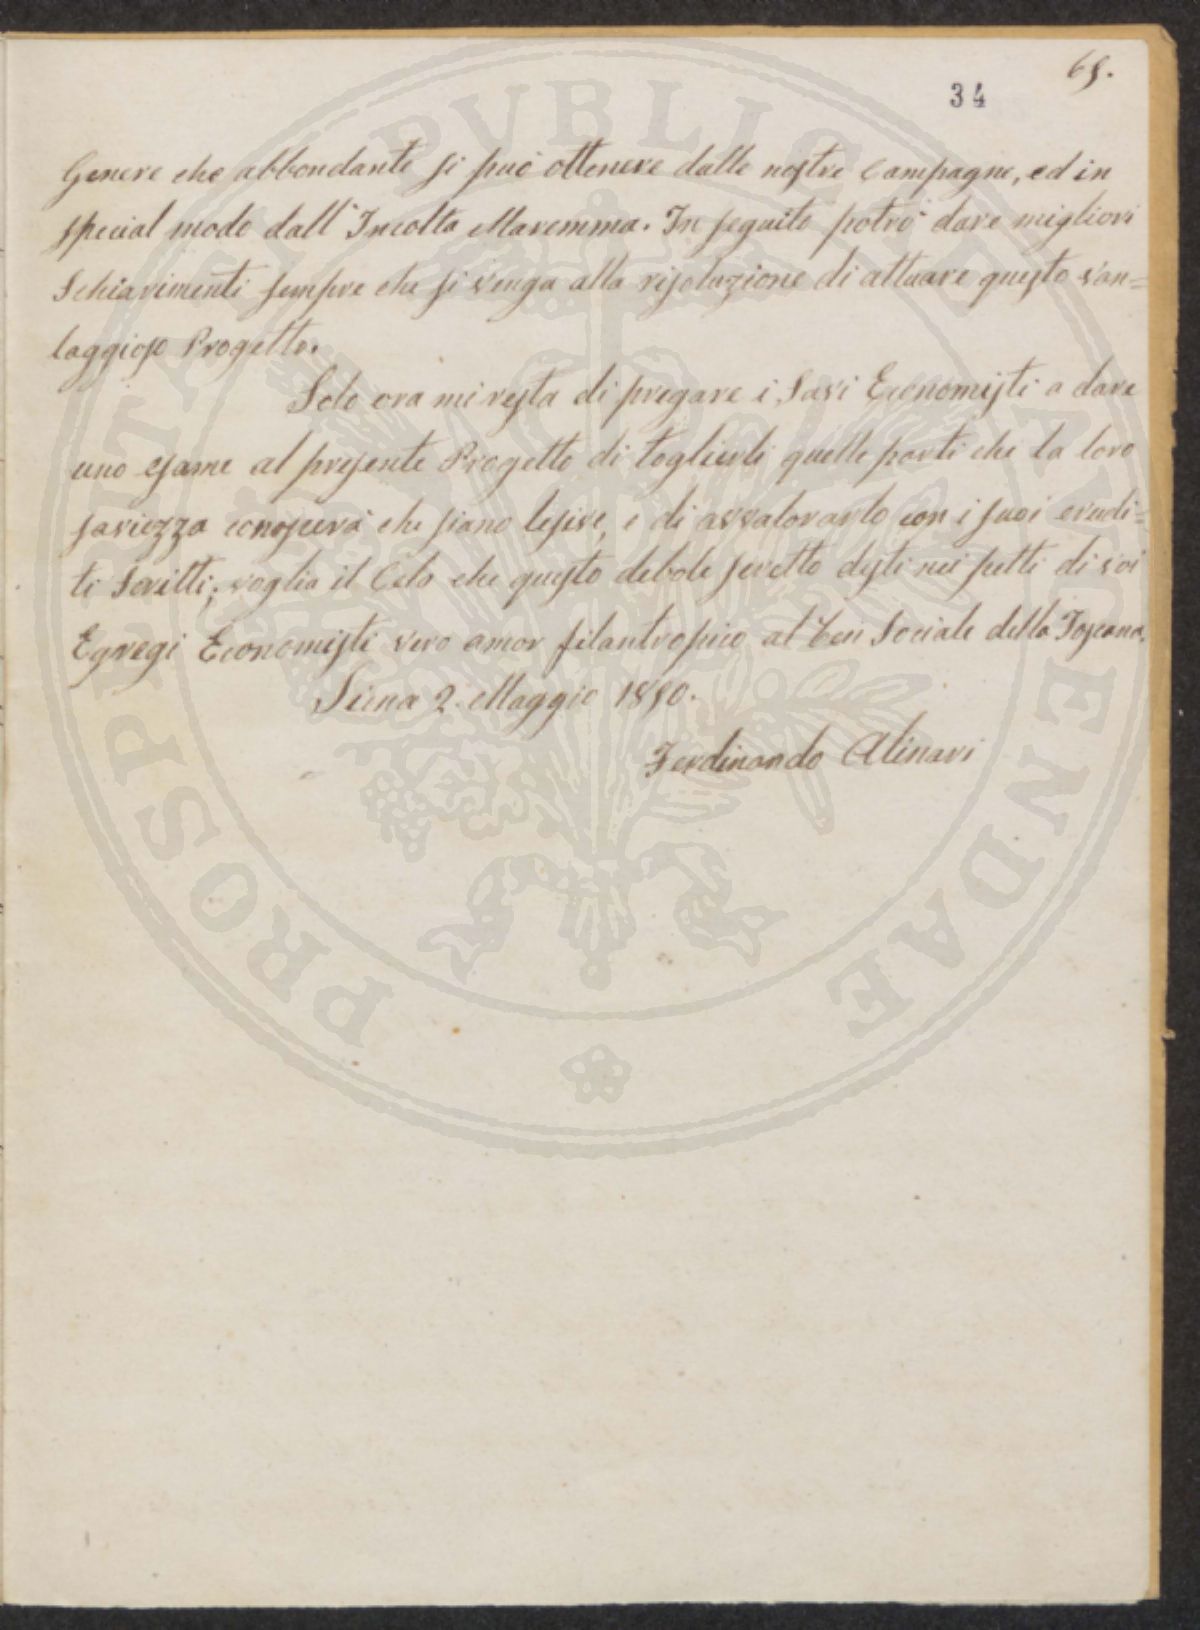 65.
34
Genere che abbondante si può ottenere dalle nostre Campagne, ed in
special modo dall'Incolta Maremma. In seguito potrò dare migliori
Schiarimenti sempre che si venga alla risoluzione di attuare questo van=
taggioso Progetto.
Solo ora mi resta di pregare i Savi Economisti a dare
uno esame al presente Progetto di toglierli quelle parti che la loro
saviezza conoscerà che siano lesive, e di avvalorarlo con i suoi erudi=
ti Scritti; voglia il Celo che questo debole scritto desti nei petti di voi
Egregi Economisti vero amor filantropico al ben Sociale della Toscana.
Siena 2. Maggio 1850.
Ferdinando Alinari
PROSPERITATI PVBLICAE AVGENDAE